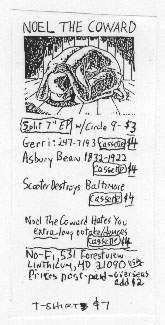 NOEL THE COWARD
Split 7" EP w/Circle 9 - $3
Gerri: 247-7193 Cassette $4
Asbury Bean 1832-1922
Cassette $4
Scooter Destroys Baltimore
Cassette $4
Noel The Coward Hates You
extra-long outtakes/dances
Cassette $4
No-Fi, 531 Forestview
Linthicum, MD 21090
Prices post-paid - overseas
add $2
T-SHIRTS $7